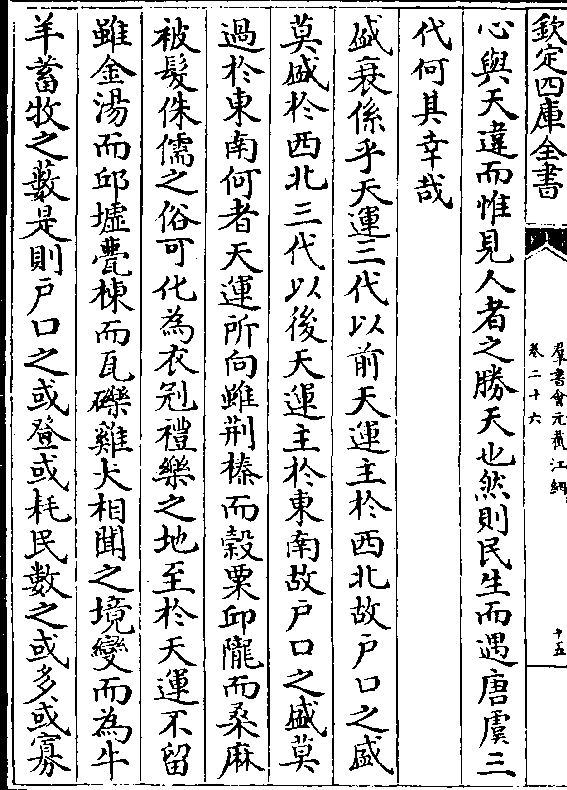 欽定四庫全書
羣書會元截江網
卷二十六
十五
心與天違而惟見人者之勝天也然則民生而遇唐虞三
代何其幸哉
盛衰係乎天運三代以前天運主於西北故戸口之盛
莫盛於西北三代以後天運主於東南故戸口之盛莫
過於東南何者天運所向雖荆榛而穀粟邱隴而桑麻
被髮侏儒之俗可化為衣冠禮樂之地至於天運不留
雖金湯而邱墟甍棟而瓦礫雞犬相聞之境變而為牛
羊蓄牧之藪是則戸口之或登或耗民數之或多或寡